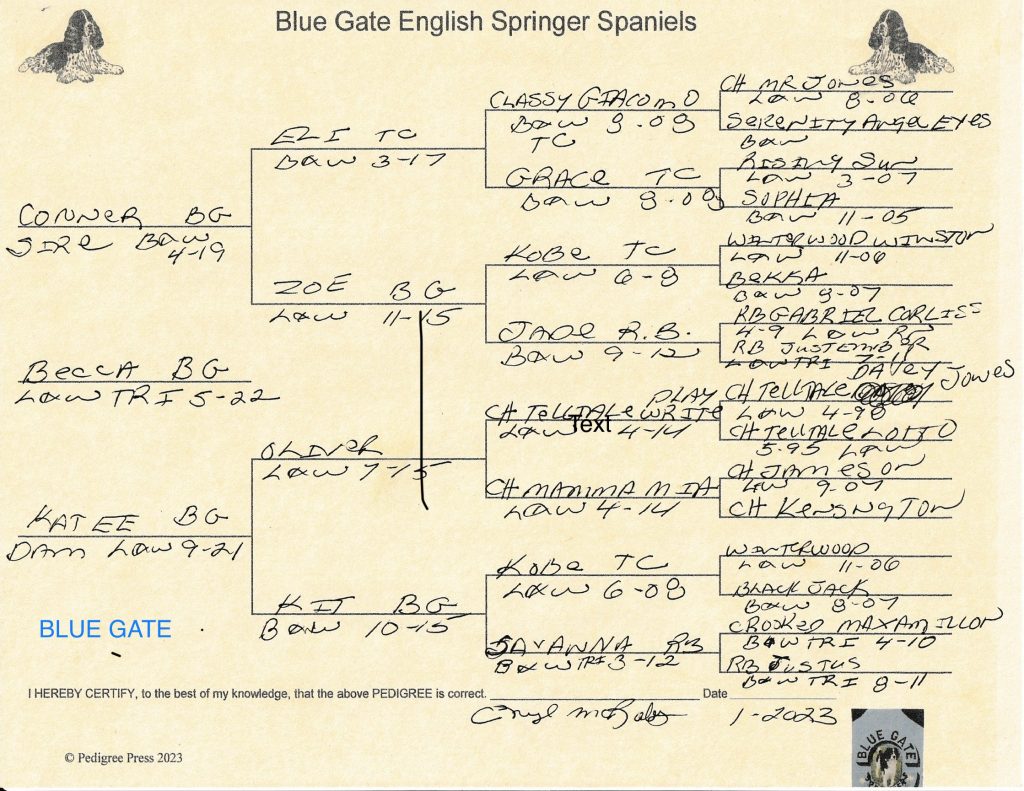 Blue Gate English Springer Spaniels
CONNER BG
SIRE B&W
4-19
BECCA BG
L&W TRI 5-22
KATEE BG
DAM L&W 9-21
BLUE GATE
ELI TC
B&W 3-17
ZOE BG
L&W 11-15
OLIVER
L&W 7-15
KIT BG
B&W 10-15
CLASSY GIACOMO
B&W 8-08
TC
GRACE TC
B&W 8-08
KOBE TC
L&W 6-8
JADE R.B.
B&W 9-12
PLAY
CH TELLTALE WRITE
L&W 4-14
Text
CH MAMMA MIA
L&W 4-14
KOBE TC
L&W 6-08
SAVANNA RB
B&W TRI 3-12
CH MR JONES
L&W 8-06
SERENITY ANGEL EYES
B&W
RISING SUN
L&W 3-07
SOPHIA
B&W 11-05
WINTERWOOD WINSTON
L&W 11-06
BEKKA
B&W 8-07
RB GABRIEL CORLISS
4-9 L&W RB
RB JUSTEMBER
L&W TRI 7-11
DAVEY JONES
CH TELLTALE
L&W 4-98
CH TELLTALE LOTTO
5-95 L&W
CH JAMESON
LW 9-07
CH KENSINGTON
WINTERWOOD
L&W 11-06
BLACK JACK
B&W 8-07
CROOKED MAXAMILLON
B&W TRI 4-10
RB JUSTUS
B&W TRI 8-11
I HEREBY CERTIFY, to the best of my knowledge, that the above PEDIGREE is correct. Date
1-2023
© Pedigree Press 2023
BLUE GATE